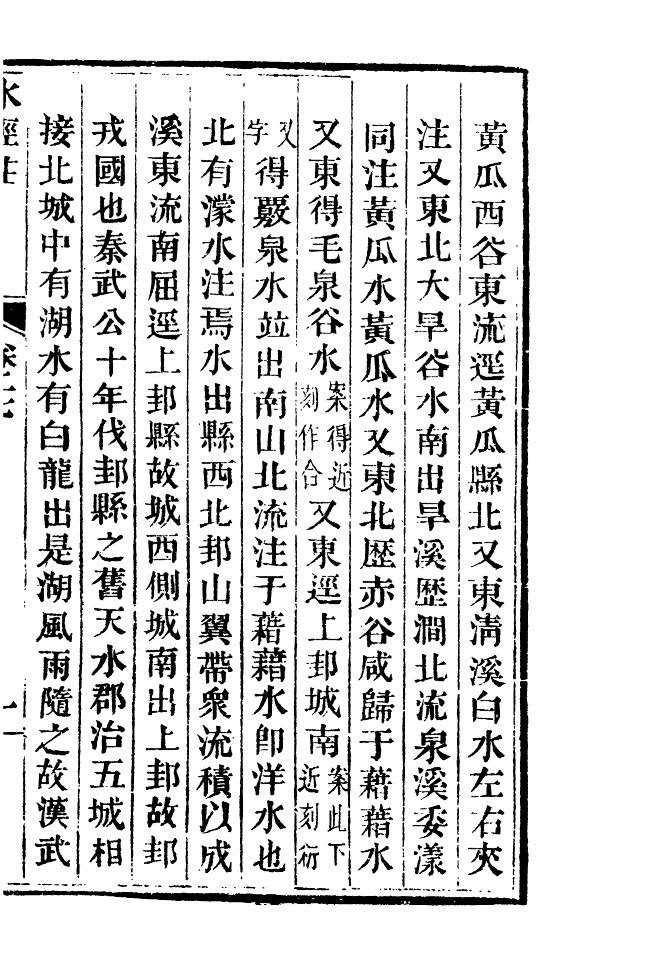 黃瓜西谷東流逕黃瓜縣北又東淸溪白水左右夾
注又東北大旱谷水南出旱溪歷澗北流泉溪委漾
同注黃瓜水黃瓜水又東北歷赤谷咸歸于藉藉水
又東得毛泉谷水案得近刻作合又東逕上邽城南案此下近刻衍
又字得覈泉水並出南山北流注于藉藉水卽洋水也
北有濛水注焉水出縣西北邽山翼帶衆流積以成
溪東流南屈逕上邽縣故城西側城南出上邽故邽
戎國也秦武公十年伐邽縣之舊天水郡治五城相
接北城中有湖水有白龍出是湖風雨隨之故漢武
水經注